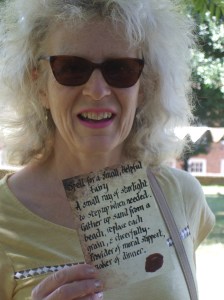 Spell for a small, helpful
fairy
A small ray of starlight
to step up when needed,
Gather up sand from a
beach, replace each
grain, & cheerfully.
Provider of moral support,
maker of dinner.